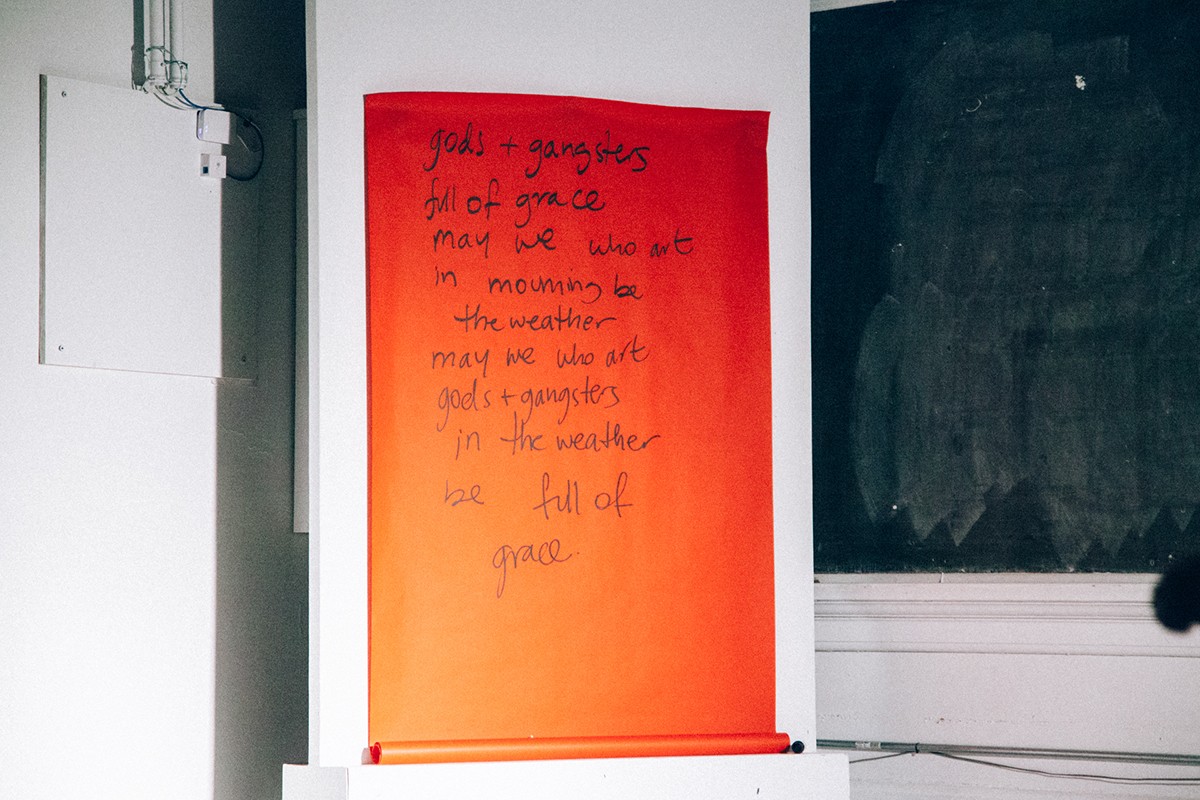 gods + gangsters
full of grace
may we who art
in mourning be
the weather
may we who art
gods + gangsters
in the weather
be full of
grace.